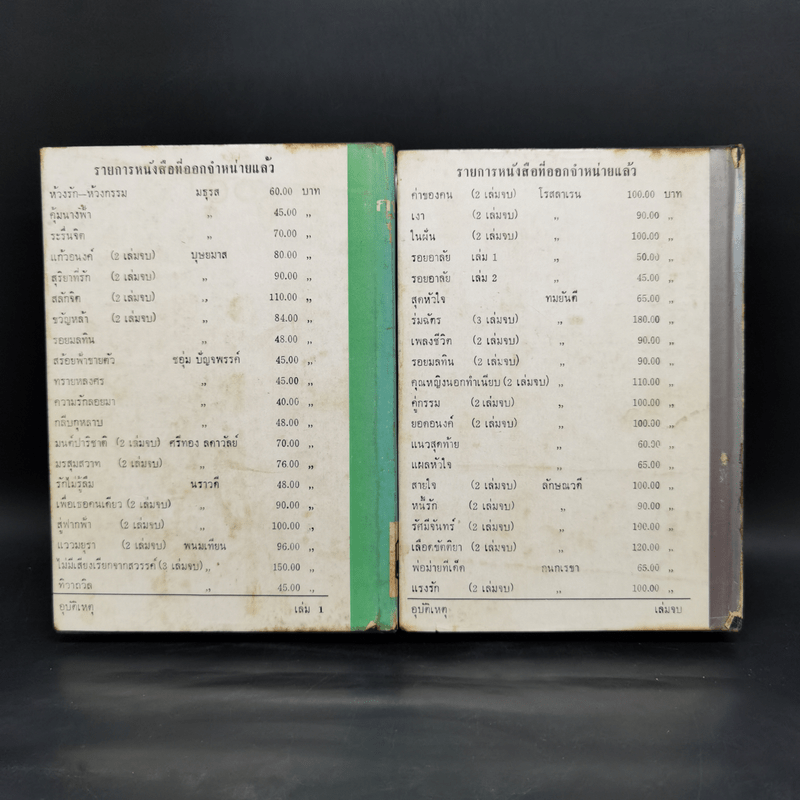 รายการหนังสือที่ออกจำหน่ายแล้ว
ห้วงรัก–ห้วงกรรม มธุรส 60.00 บาท
คุ้มนางฟ้า ,, 45.00 ,,
ระรื่นจิต ,, 70.00 ,,
แก้วอนงค์ (2 เล่มจบ) บุษยมาส 80.00 ,,
สุริยาที่รัก (2 เล่มจบ) ,, 90.00 ,,
สลักจิต (2 เล่มจบ) ,, 110.00 ,,
ขวัญหล้า (2 เล่มจบ) ,, 84.00 ,,
รอยมลทิน ,, 48.00 ,,
สร้อยฟ้าขายตัว ชอุ่ม ปัญจพรรค์ 45.00 ,,
ทรายหลงศร ,, 45.00 ,,
ความรักลอยมา ,, 40.00 ,,
กลีบกุหลาบ ,, 48.00 ,,
มนต์ปาริชาติ (2 เล่มจบ) ศรีทอง ลดาวัลย์ 70.00 ,,
มรสุมสวาท (2 เล่มจบ) ,, 76.00 ,,
รักไม่รู้ลืม นราวดี 48.00 ,,
เพื่อเธอคนเดียว (2 เล่มจบ) ,, 90.00 ,,
สู่ฟากฟ้า (2 เล่มจบ) ,, 100.00 ,,
แววมยุรา (2 เล่มจบ) พนมเทียน 96.00 ,,
ไม่มีเสียงเรียกจากสวรรค์ (3 เล่มจบ) ,, 150.00 ,,
ทิวาถวิล ,, 45.00 ,,
อุบัติเหตุ เล่ม 1
รายการหนังสือที่ออกจำหน่ายแล้ว
ค่าของคน (2 เล่มจบ) โรสลาเรน 100.00 บาท
เงา (2 เล่มจบ) ,, 90.00 ,,
ในฝัน (2 เล่มจบ) ,, 100.00 ,,
รอยอาลัย เล่ม 1 ,, 50.00 ,,
รอยอาลัย เล่ม 2 ,, 45.00 ,,
สุดหัวใจ ทมยันตี 65.00 ,,
ร่มฉัตร (3 เล่มจบ) ,, 180.00 ,,
เพลงชีวิต (2 เล่มจบ) ,, 90.00 ,,
รอยมลทิน (2 เล่มจบ) ,, 90.00 ,,
คุณหญิงนอกทำเนียบ (2 เล่มจบ) ,, 110.00 ,,
คู่กรรม (2 เล่มจบ) ,, 100.00 ,,
ยอดอนงค์ (2 เล่มจบ) ,, 100.00 ,,
แนวสุดท้าย ,, 60.00 ,,
แผลหัวใจ ,, 65.00 ,,
สายใจ (2 เล่มจบ) ลักษณวดี 100.00 ,,
หนี้รัก (2 เล่มจบ) ,, 90.00 ,,
รัศมีจันทร์ (2 เล่มจบ) ,, 100.00 ,,
เลือดขัตติยา (2 เล่มจบ) ,, 120.00 ,,
พ่อม่ายทีเด็ด กนกเรขา 65.00 ,,
แรงรัก (2 เล่มจบ) ,, 100.00 ,,
อุบัติเหตุ เล่มจบ